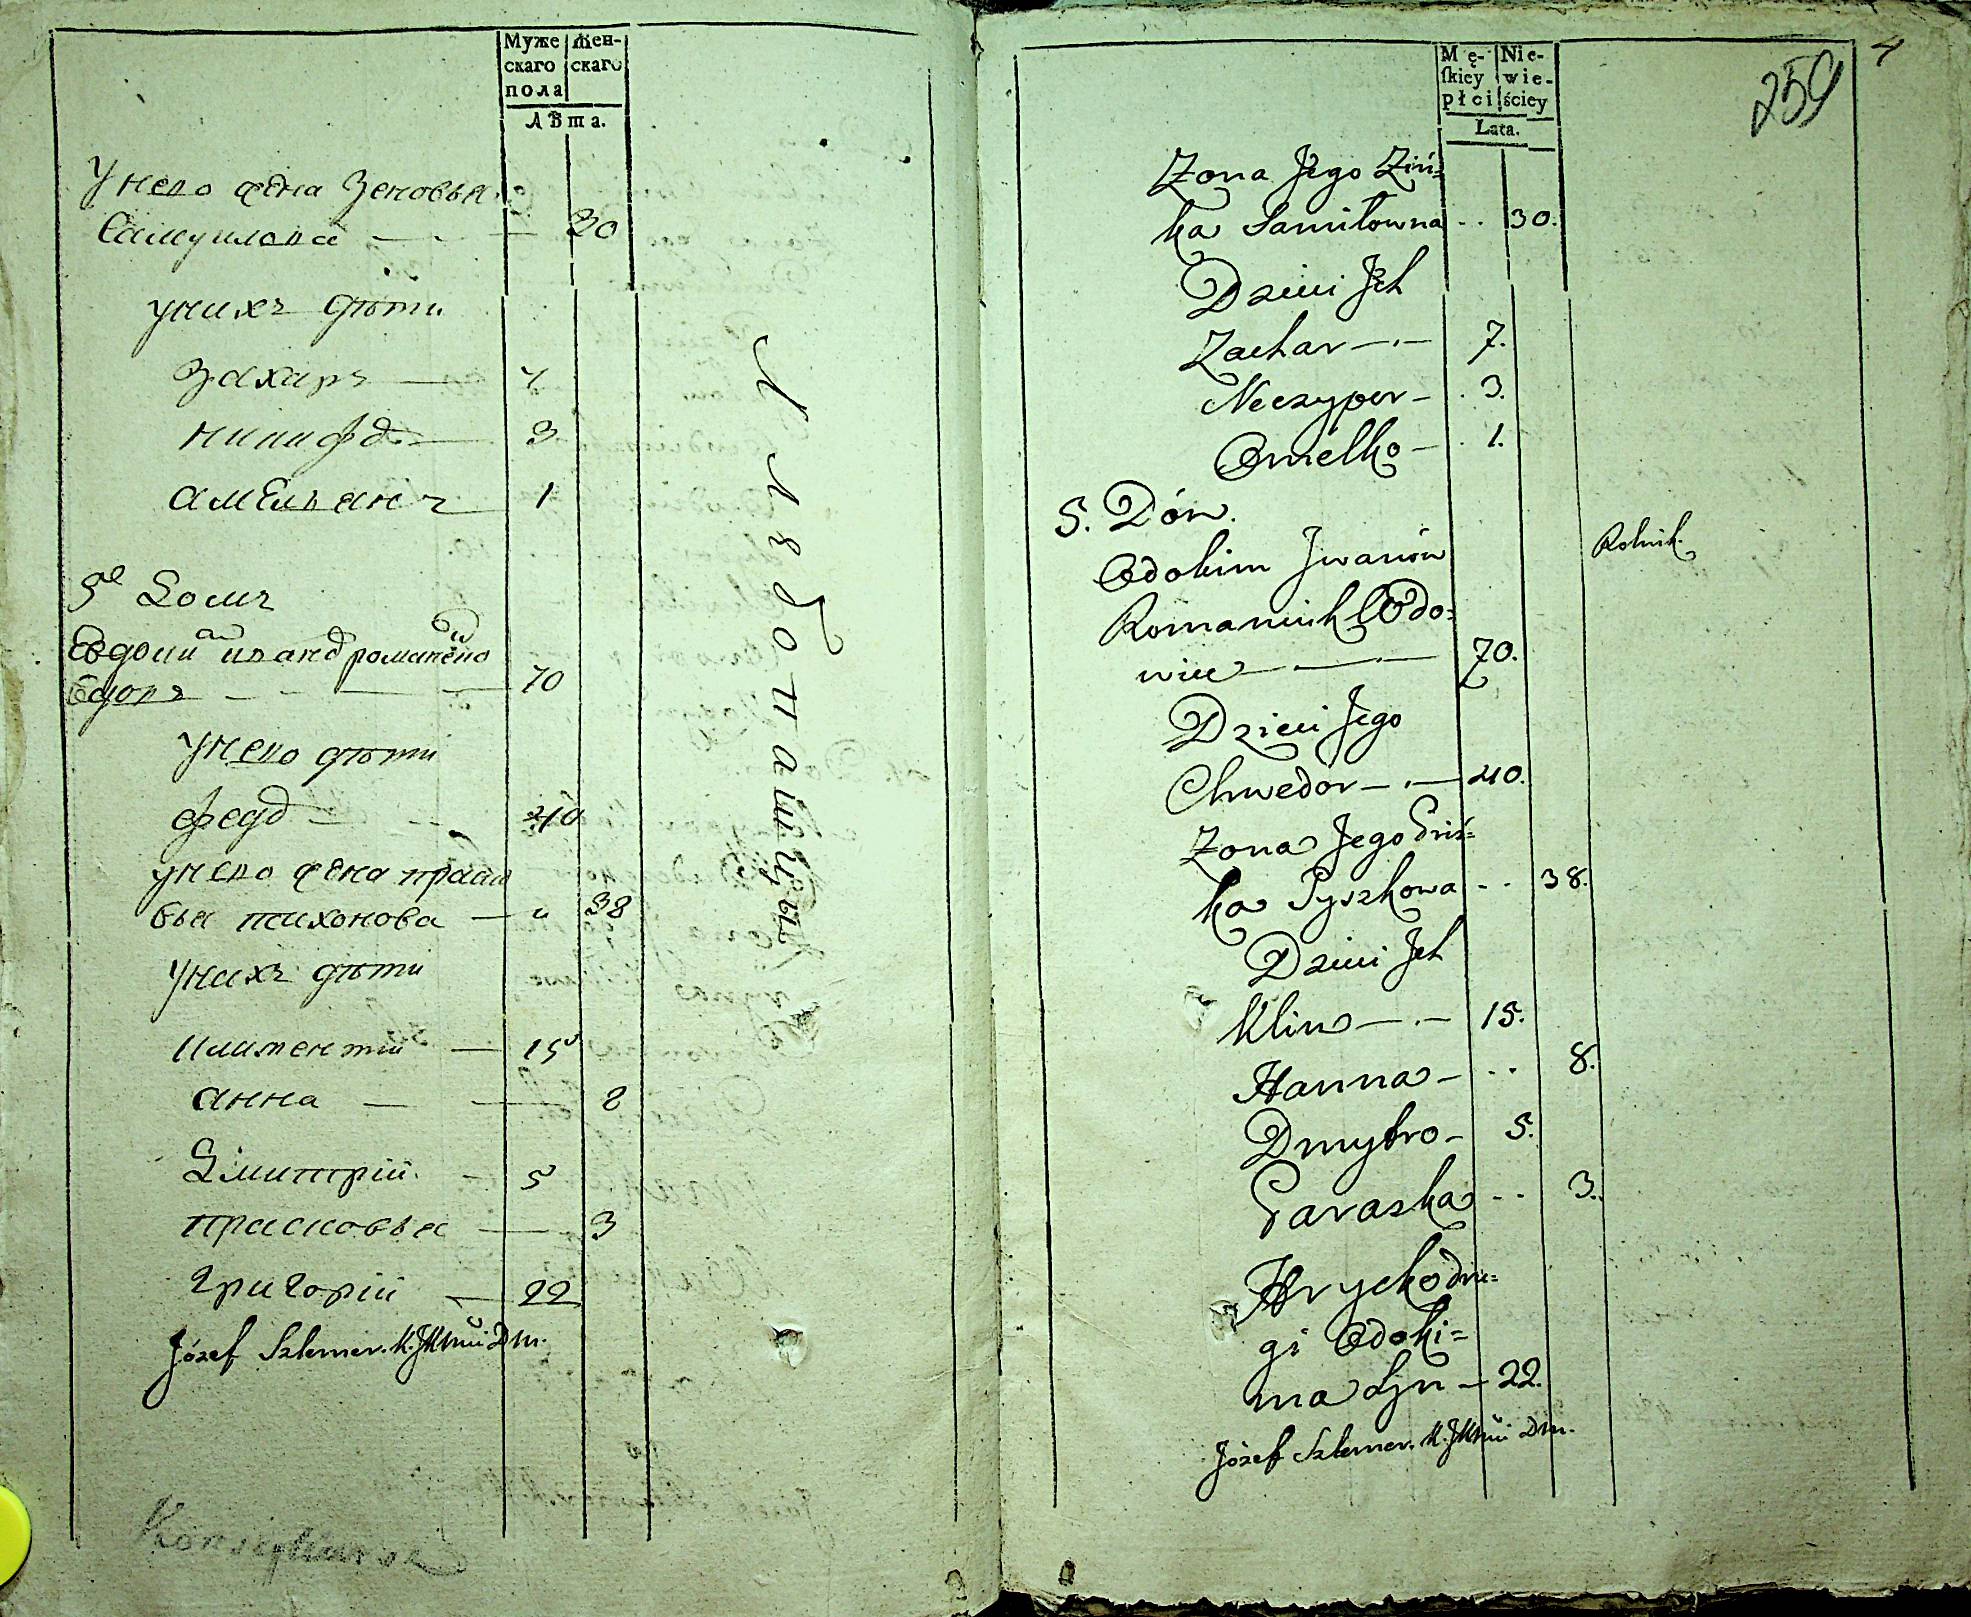 Муже
скаго
пола
Жен-
скаго
Лѣта.
У него жена Зеновья
Самуилова — 30
у нихъ дѣти
Захаръ — 7
Ничифоръ — 3
Амельянъ — 1
5й Домъ
Евдоким Иванов Романюк
вдовъ — 70
У него дѣти
Федор — 40
у него жена Праско
вья Тихонова — „ 38
У нихъ дѣти
Климентий — 15
Анна — 8
Дмитрій — 5
Прасковья — 3
Григорій — 22
Józef Szlemer. K. Dm.
Хлебопашцы
4
259
Mę-
ſkiey
płci
Nie-
wie-
ściey
Lata.
Zona Jego Ziń=
ka Samiłowna .. 30.
Dzieci Jch
Zachar — . — 7.
Neczypor — . 3.
Omelko — . 1.
5. Dóm.
Odokim Jwanów Rolnik.
Romaniuk Wdo=
wiec — — 70.
Dzieci Jego
Chwedor — . — 40.
Zona Jego Pris=
ka Tyszkowa .. 38.
Dzieci Jch
Klim — . — 15.
Hanna — .. 8.
Dmytro — 5.
Paraska .. 3.
Hrycko dru=
gi Odoki=
ma Syn — 22.
Józef Szlemer. K. Dm.